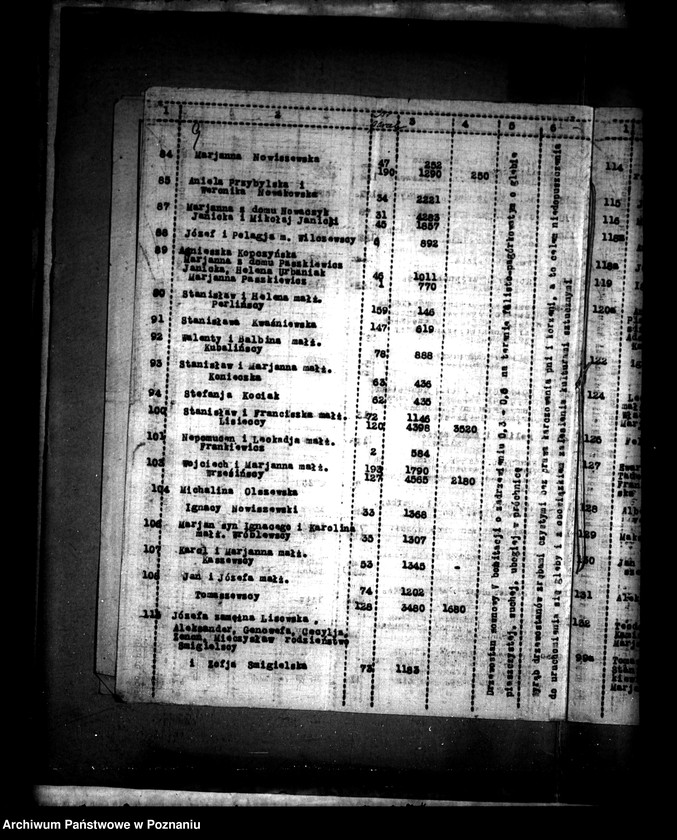 1 2 3 4 5 6
84 Marjanna Nowiszewska
47 252
190 1290 250
85 Aniela Przybylska i
Weronika Nowakowska
34 2221
87 Marjanna z domu Nowaczyk
Janicka i Mikołaj Janicki
31 4283
45 1857
88 Józef i Pelagja m. Wilczewscy
892
89 Agnieszka Kopczyńska
Marjanna z domu Paszkiewicz
Janicka, Helena Urbaniak
Marjanna Paszkiewicz
46 1011
1 770
90 Stanisław i Helena małż.
Perlińscy
159 146
91 Stanisława Kwaśniewska
147 819
92 Walenty i Balbina małż.
Kubalińscy
78 888
93 Stanisław i Marjanna małż.
Konieczka
63 436
94 Stefanja Kociak
62 435
100 Stanisław i Franciszka małż.
Lisieccy
72 1146
120 4398 3520
101 Nepomucen i Leokadja małż.
Frankiewicz
2 584
103 Wojciech i Marjanna małż.
Wrzesińscy
193 1790
127 4565 2180
104 Michalina Olszewska
Ignacy Nowiszewski
33 1368
106 Marjan syn Ignacego i Karolina
małż. Wróblewscy
35 1307
107 Karol i Marjanna małż.
Kaszewscy
53 1345 -
108 Jan i Józefa małż.
Tomaszewscy
74 1202
128 3480 1680
Józefa zamężna Lisowska,
Aleksander, Genowefa, Cecylja,
Zenon, Mieczysław rodzeństwo
Smigielscy
i Zofja Smigielska
73 1183
Drzewostan sosnowy V bonitacji o zadrzewieniu 0,3 - 0,8 na terenie falisto-pagórkowatym o glebie
piaszczystej, suchej, ubogiej w próchnicę
Wyrąb drzewostanów zrębami czystymi bez prawa karczowania pni i korzeni, a to celem niedopuszczenia
do uruchomienia się gleby i z obowiązkiem zalesienia kulturami sztucznymi
1
114
115
116
118a
119
120a
122
124
125
127
128
129
131
132
99a
Archiwum Państwowe w Poznaniu